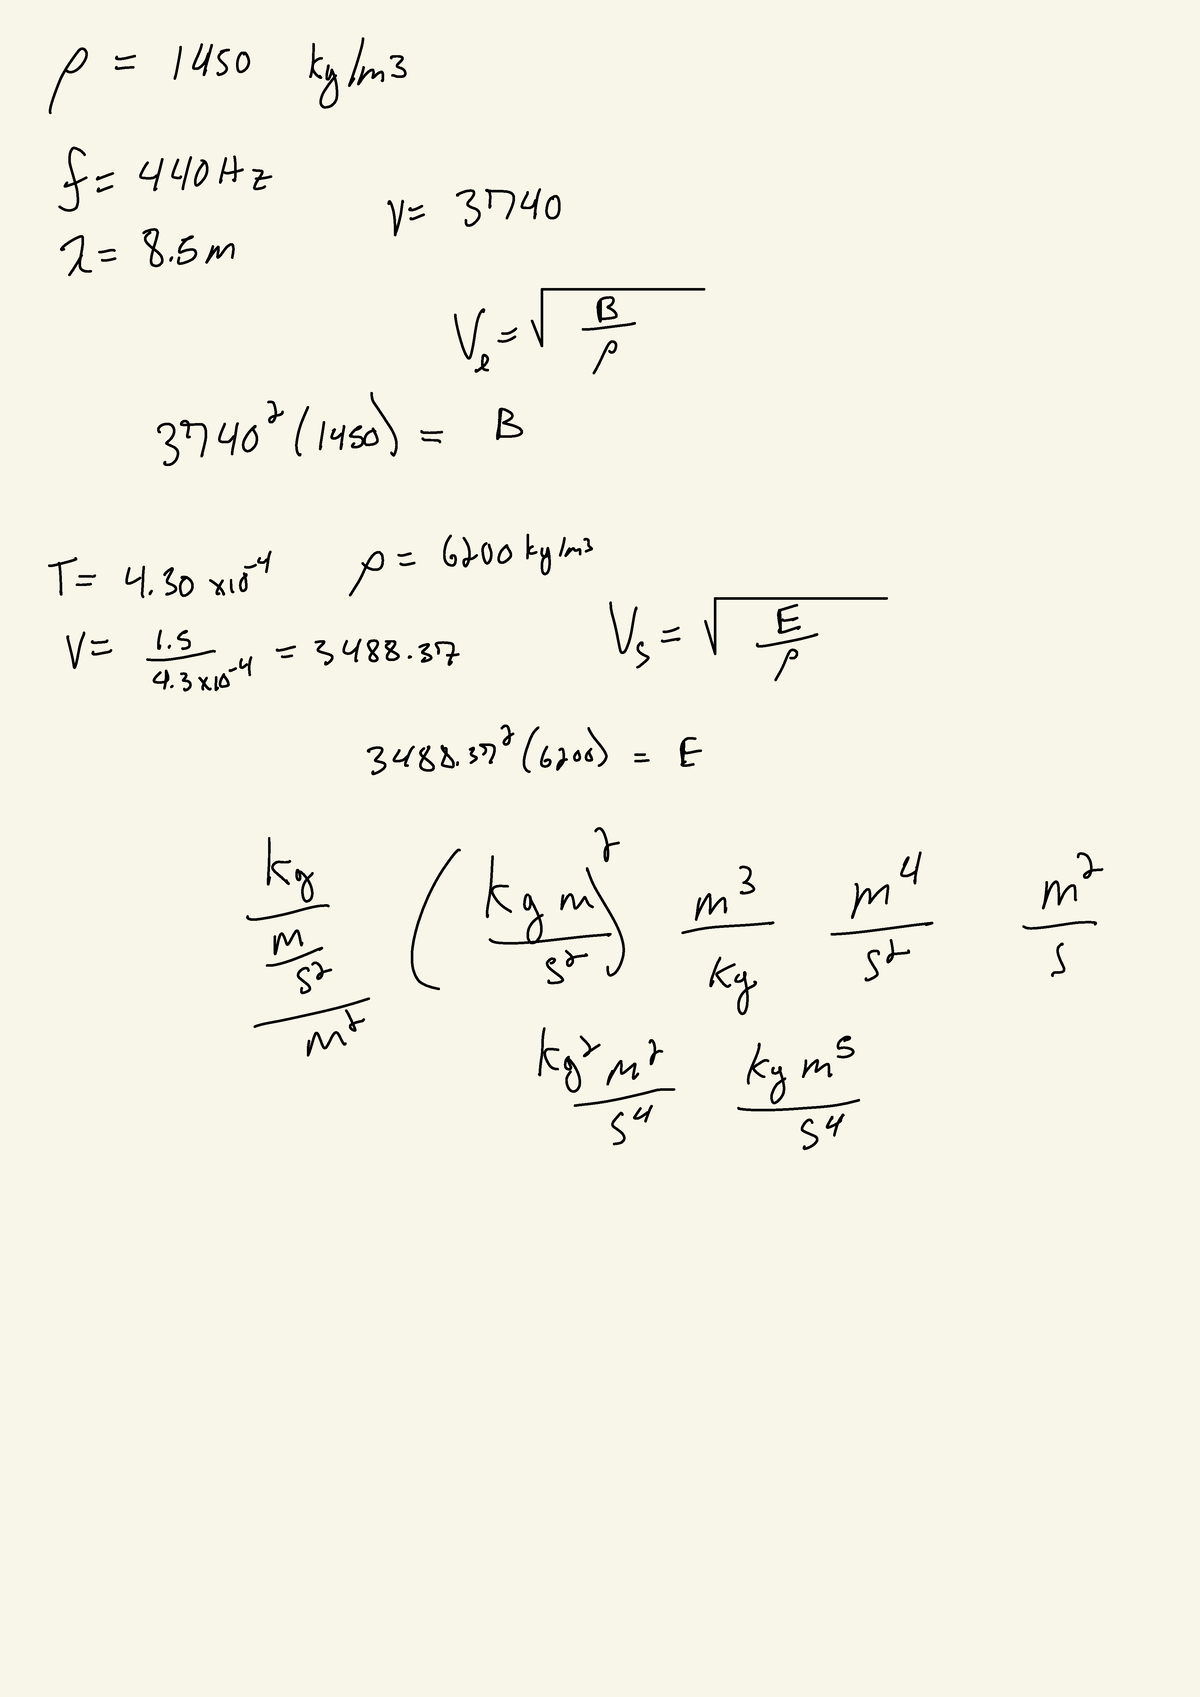 ρ = 1450 kg/m3
f = 440Hz
V= 3740
λ = 8.5m
V_l = √(B/ρ)
3740² (1450) = B
T= 4.30 x10^-4 ρ = 6200 kg/m3
V= 1.5/(4.3x10^-4) = 3488.37 V_s = √(E/ρ)
3488.37² (6200) = E
kg/(m/s²)/m² (kg m/s²)² m³/kg m⁴/s² m²/s
kg² m²/s⁴ kg m⁵/s⁴